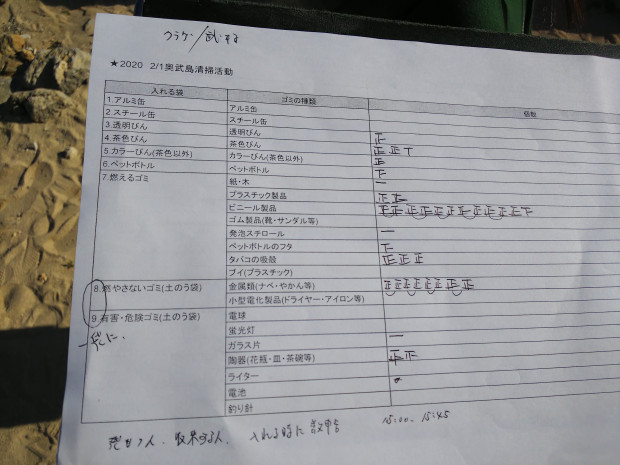 ★2020 2/1奥武島清掃活動
入れる袋 ゴミの種類 個数
1.アルミ缶 アルミ缶
2.スチール缶 スチール缶
3.透明びん 透明びん 正
4.茶色びん 茶色びん 正 正 丅
5.カラーびん(茶色以外) カラーびん(茶色以外) 正
6.ペットボトル ペットボトル 下
7.燃えるゴミ 紙・木 一
プラスチック製品
ビニール製品
ゴム製品(靴・サンダル等)
発泡スチロール 一
ペットボトルのフタ 下
タバコの吸殻 正 正 正
ブイ(プラスチック)
8.燃やさないゴミ(土のう袋) 金属類(ナベ・やかん等) 正 正 正 正 正 正 正 正
小型電化製品(ドライヤー・アイロン等)
9.有害・危険ゴミ(土のう袋) 電球
蛍光灯
ガラス片 一
陶器(花瓶・皿・茶碗等)
ライター
電池
釣り針
入れる時に
15:00 - 15:45